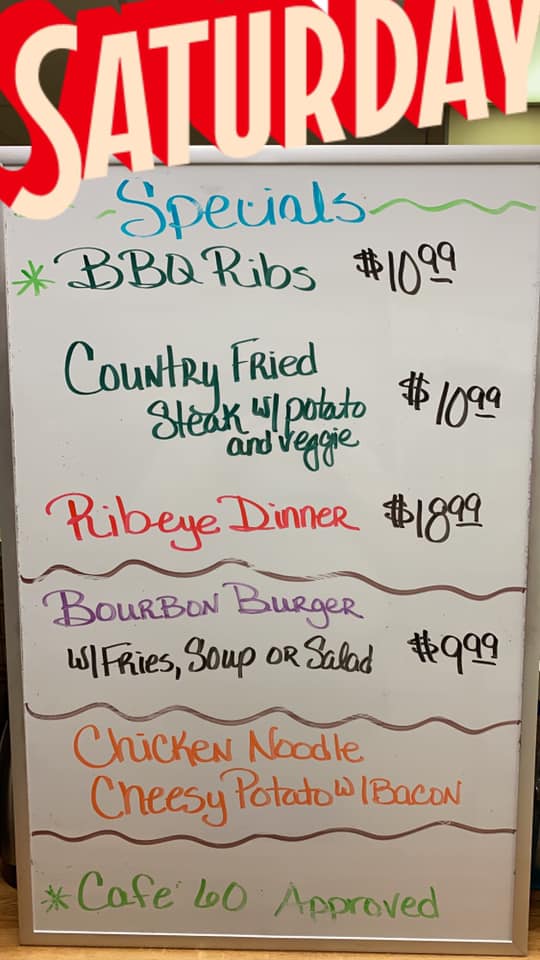 SATURDAY
Specials
* BBQ Ribs $10.99
Country Fried
Steak w/ potato $10.99
and veggie
Ribeye Dinner $18.99
Bourbon Burger
w/ Fries, Soup or Salad $9.99
Chicken Noodle
Cheesy Potato w/ Bacon
* Cafe 60 Approved